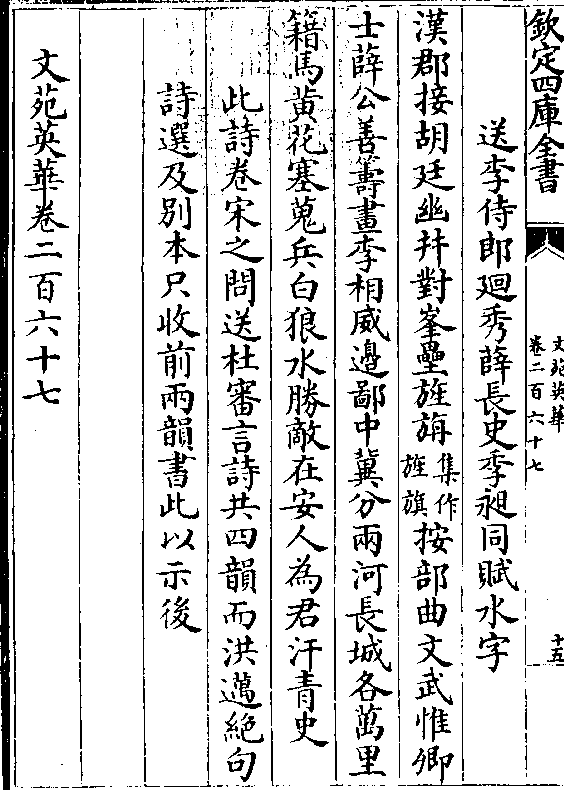 欽定四庫全書
文苑英華
卷二百六十七
十五
送李侍郎廻秀薛長史季昶同賦水字
漢郡接胡廷幽幷對峯壘旌旃集作旌旗按部曲文武惟卿
士薛公善籌畫李相威邊鄙中冀分兩河長城各萬里
籍馬黄花塞蒐兵白狼水勝敵在安人為君汗青史
此詩卷宋之問送杜審言詩共四韻而洪邁絶句
詩選及别本只收前兩韻書此以示後
文苑英華卷二百六十七